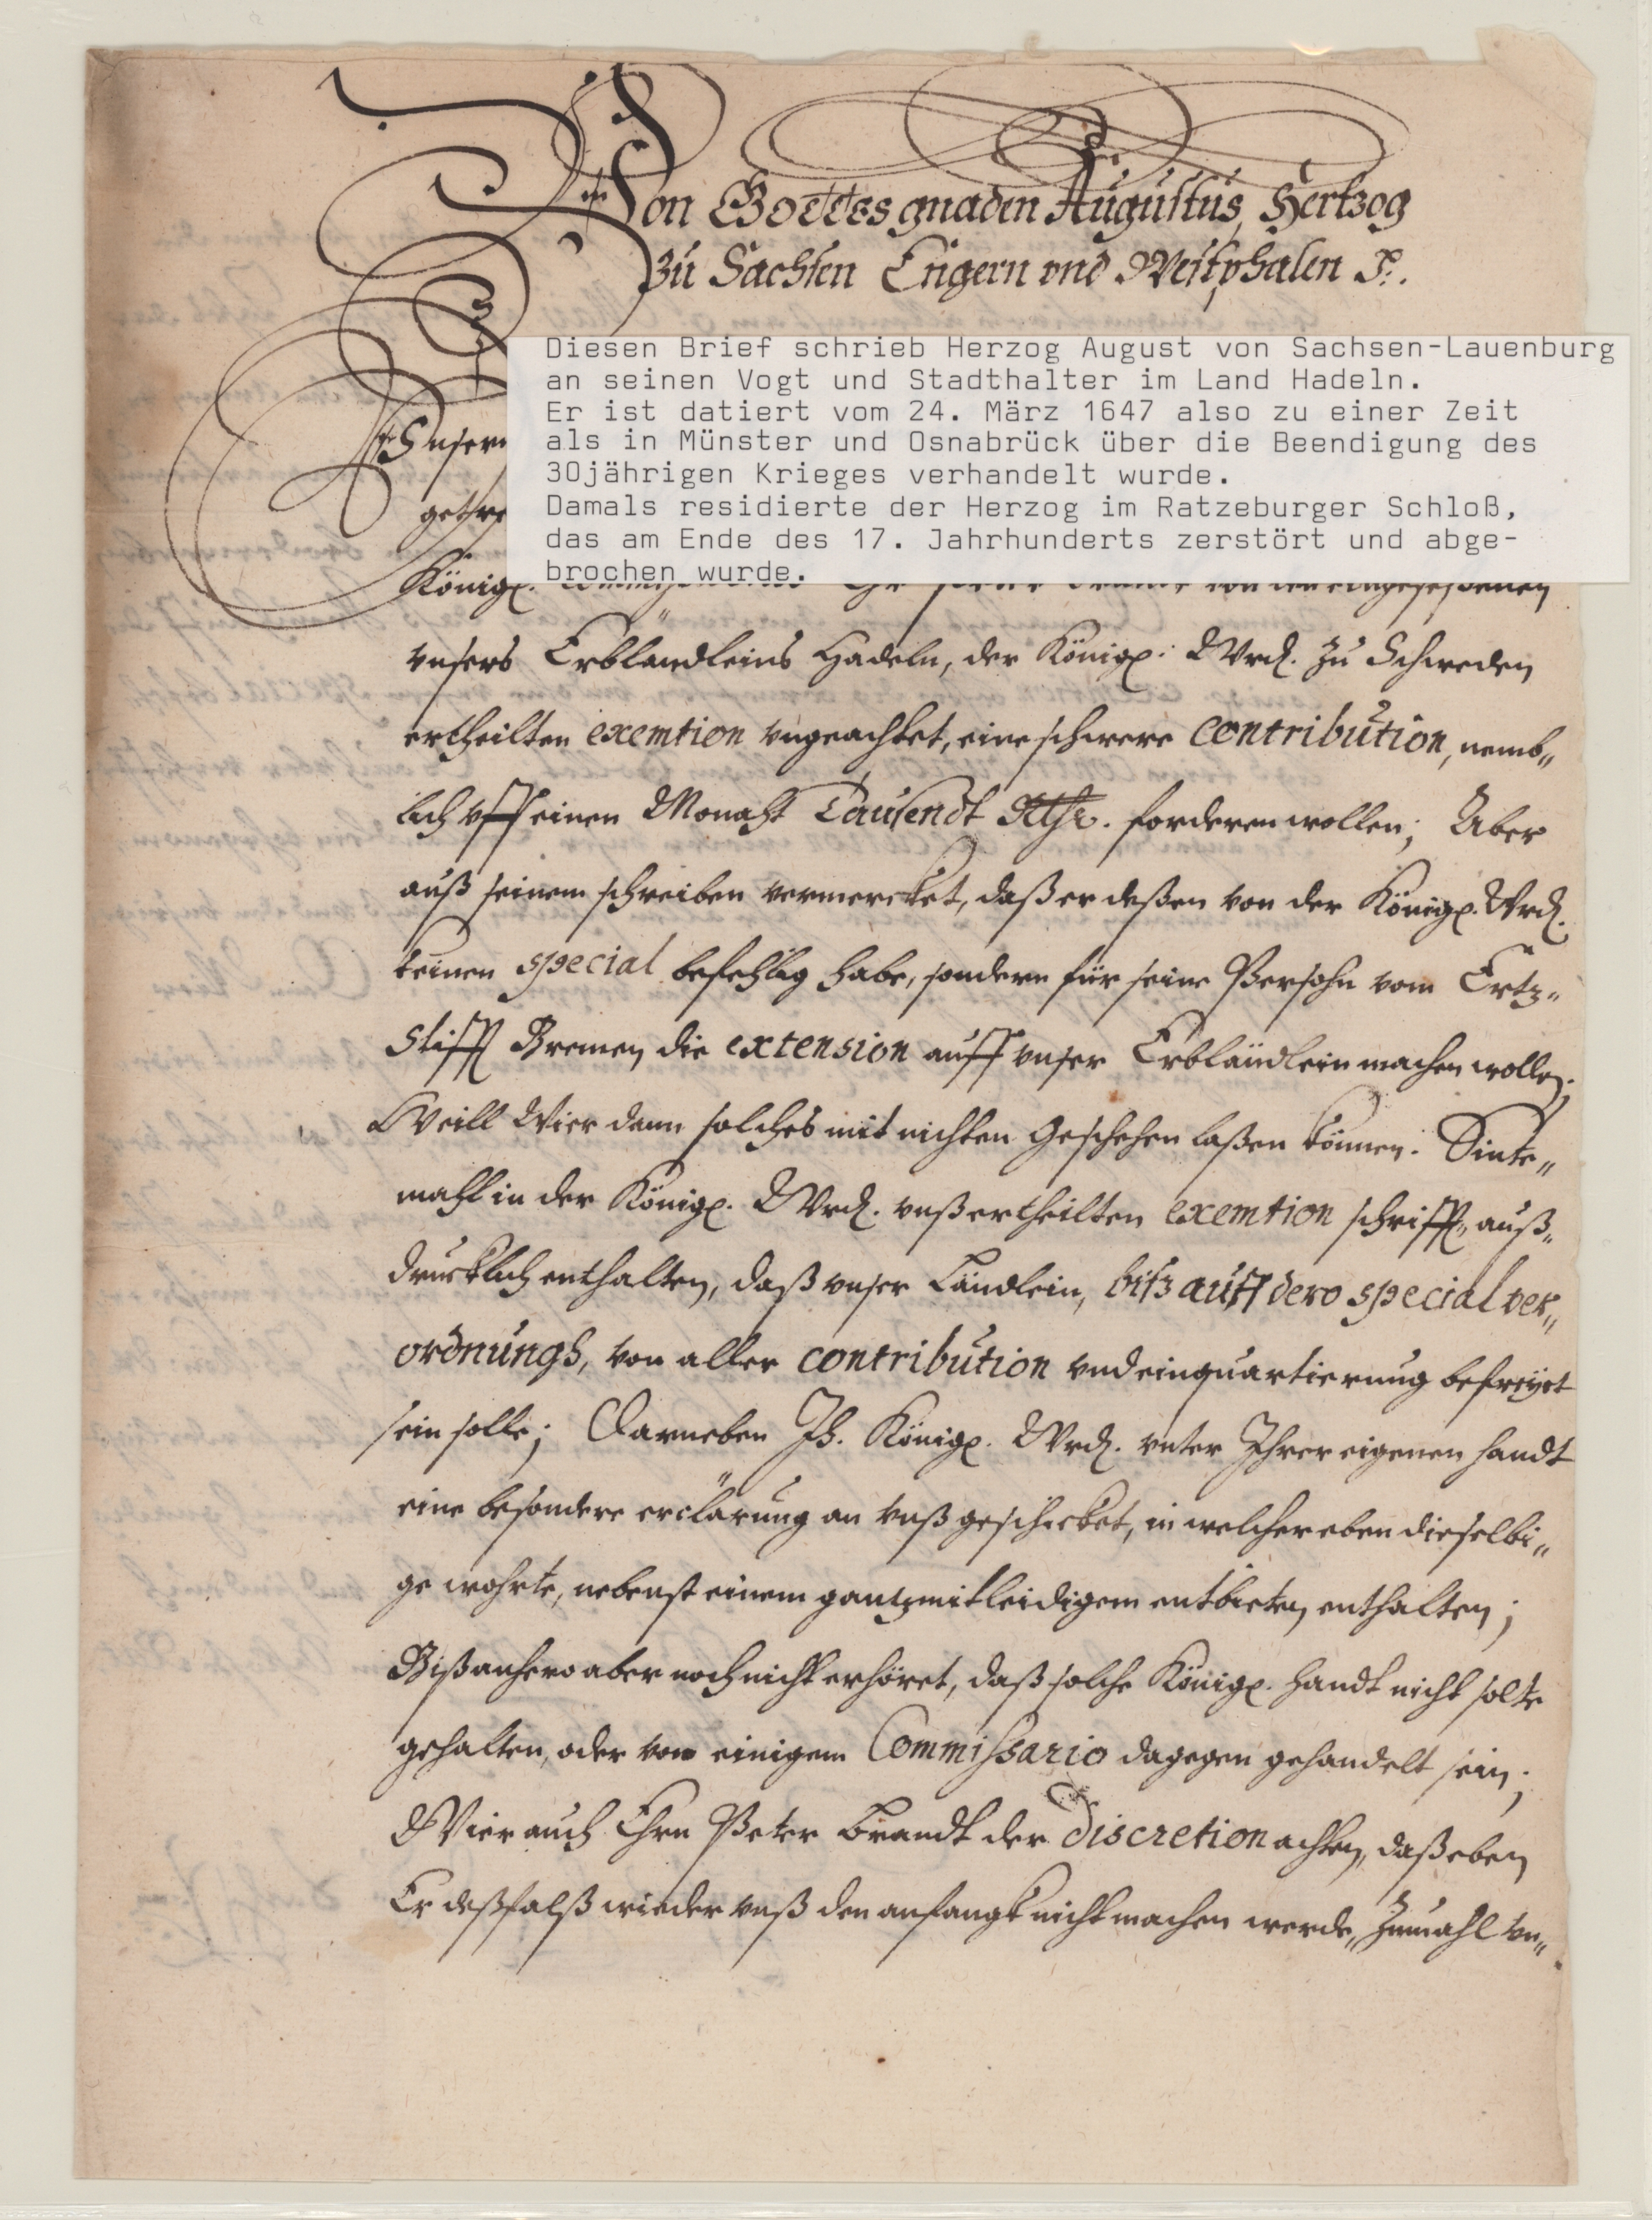 Von Gottes gnaden Augustus, Hertzog
zu Sachsen Engern vnd Westphalen
Diesen Brief schrieb Herzog August von Sachsen-Lauenburg
an seinen Vogt und Stadthalter im Land Hadeln.
Er ist datiert vom 24. März 1647 also zu einer Zeit
als in Münster und Osnabrück über die Beendigung des
30jährigen Krieges verhandelt wurde.
Damals residierte der Herzog im Ratzeburger Schloß,
das am Ende des 17. Jahrhunderts zerstört und abge-
brochen wurde.
Unsern
getre
Königl. von den eingeseßenen
vnsers Erbländleins Hadeln, der Königl. Wrd. zu Schweden
ertheilten exemtion vngeachtet, eine schwere contribution, nemb„
lich vff einen Monaht Tausendt Rthr. forderen wollen; Aber
auß seinem schreiben vermercket, daß er deßen von der Königl. Wrd.
keinen special befehlig habe, sondern für seine Persohn vom Ertz„
Stifft Bremen die extension auff vnser Erbländlein machen wollen;
Weill Wier dann solches mit nichten Geschehen laßen können. Sinte„
mahl in der Königl. Wrd. vnß ertheilten exemtion schrifft, auß„
drucklich enthalten, daß vnser Ländlein, bitz auff dero special ver„
ordnungh, von aller contribution vnd einquartierung befreyet
sein solle; Darneben Ih. Königl. Wrd. vnter Ihrer eigenen handt
eine besondere erclärung an vnß geschicket, in welcher eben dieselbi„
ge wohrte, nebenst einem gantz mitleidigem entbieten enthalten;
Biß anhero aber noch nicht erhöret, daß solche Königl. handt nicht solte
gehalten, oder von einigem Commissario dagegen gehandelt sein;
Wier auch Ehrn Peter Brandt der discretion achten, daß eben
Er deßfalß wieder vnß den anfangk nicht machen werde, Zumahl vn„